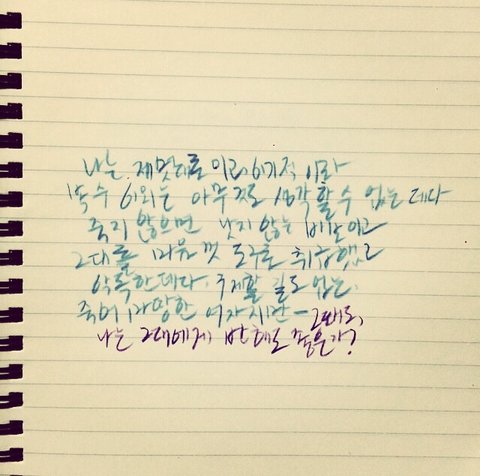 나는 제멋대로 이고, 이기적 이라
복수 이외는 아무 것도 생각할 수 없는 데다
죽지 않으면 낫지 않는 바보이고
그대를 마음껏 도구로 취급했고
악독한데다. 구제할 길도 없는.
죽어 마땅한 여자지만— 그래도,
나는 그대에게 반해도 좋은가?